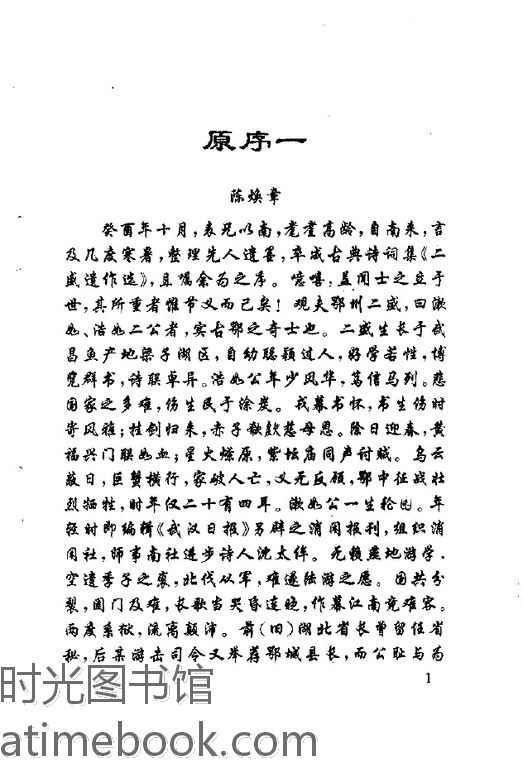 原序一
陈焕章
癸酉年十月，表兄以南，耄耋高龄，自南来，言
及几度寒暑，整理先人遗墨，卒成古典诗词集《二
盛遗作选》，且嘱余为之序。噫嘻，盖闻士之立于
世，其所重者惟节义而已矣！观夫鄂州二盛，曰漱
如、浩如二公者，实古鄂之奇士也。二盛生长于武
昌鱼产地梁子湖区，自幼聪颖过人，好学若性，博
览群书，诗联卓异。浩如公年少风华，笃信马列。悲
国家之多难，伤生民于涂炭。戎幕书怀，书生伤时
寄风雅；挂剑归来，赤子欷歔慈母恩。除日迎春，黄
福兴门联如血；星火燎原，紫坛庙同声付赋。乌云
蔽日，巨蟹横行，家破人亡，义无反顾，鄂中征战壮
烈牺牲，时年仅二十有四耳。漱如公一生轮囷。年
轻时即编辑《武汉日报》另辟之消闲报刊，组织消
闲社，师事南社进步诗人沈太侔。无赖燕地游学，
空遗季子之裘，北伐从军，难遂陆游之愿。国共分
裂，阖门及难，长歌当哭昏连晚，作幕江南竟难容。
两度系狱，流离颠沛。前（旧）湖北省长曾留任省
秘，后某游击司令又举荐鄂城县长，而公耻与为
1
时光图书馆
atimebook.com